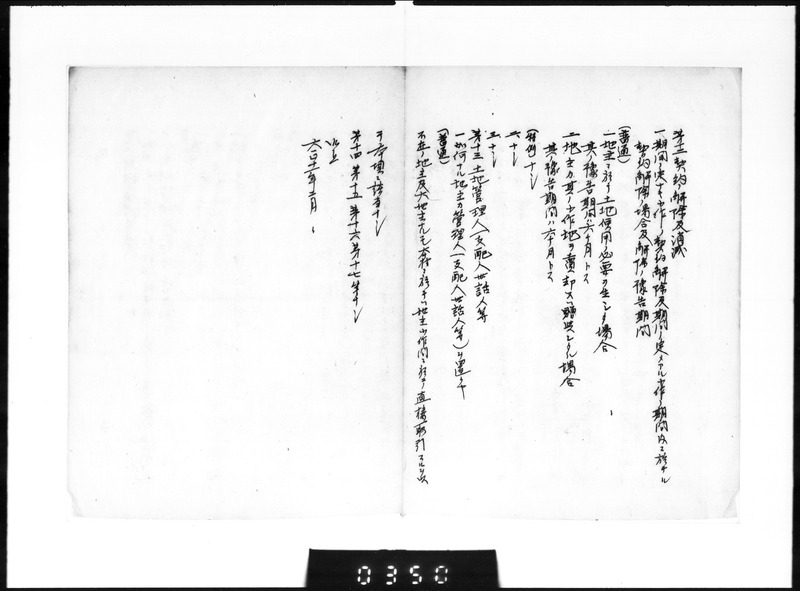 第十二 契約ノ解除及消滅
一 期間ノ定ナキ小作ノ契約解除及期間ノ定メアル小作ノ期間内ニ於ケル
契約解除ノ場合及解除ノ豫告期間
(普通)
一 地主ニ於テ土地使用ノ必要ヲ生シタ場合
其ノ豫告期間ハ六ヶ月トス
二 地主カ其ノ小作地ヲ賣却又ハ贈与シタル場合
其ノ豫告期間ハ六ヶ月トス
(特例) ナシ
二、ナシ
三、ナシ
第十三 土地管理人(支配人世話人等
一 如何ナル地主カ管理人(支配人世話人等)ヲ置クヤ
(普通)
不在ノ地主及大地主ナルモ本村ニ於テハ地主小作間ニ於テ直接取引スル以
テ本項ニ該当ナシ
第十四 第十五 第十六 第十七 等ナシ
以上
大正十一年二月
0350